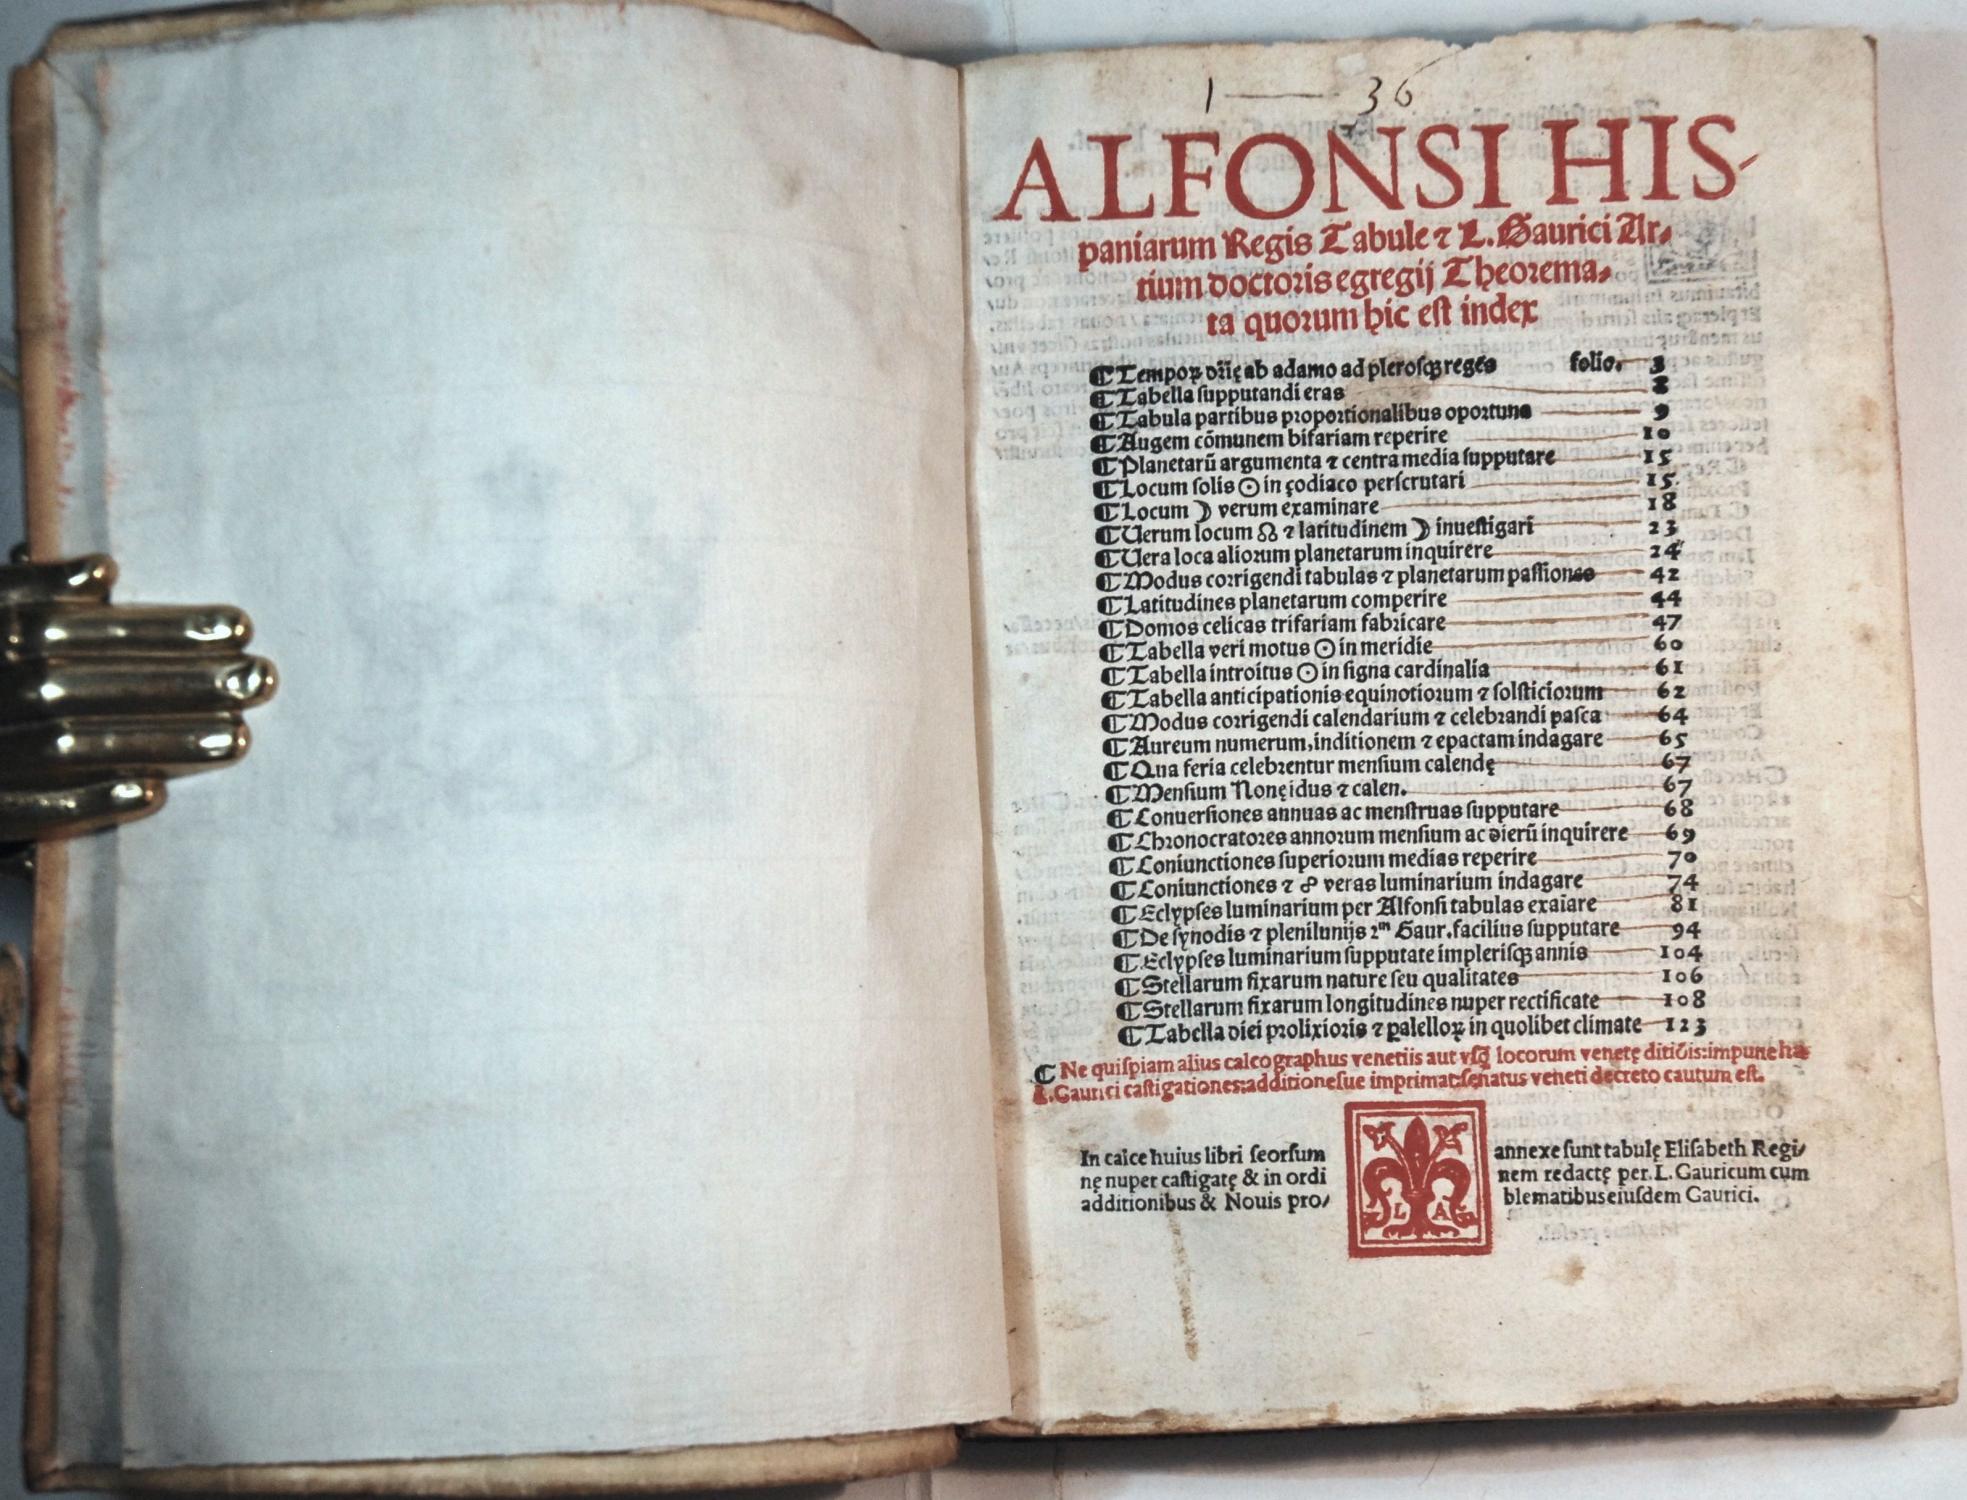 1 — 36
ALFONSI HIS-
paniarum Regis Tabule ⁊ L. Gaurici Ar⸗
tium doctoris egregij Theorema⸗
ta quorum hic est index
¶ Tempoꝝ dr̄ię ab adamo ad plerosqꝫ reges folio. 3
¶ Tabella supputandi eras 8
¶ Tabula partibus proportionalibus oportuna 9
¶ Augem cōmunem bifariam reperire 10
¶ Planetarū argumenta ⁊ centra media supputare 15
¶ Locum solis ☉ in çodiaco perscrutari 15.
¶ Locum ☽ verum examinare 18
¶ Uerum locum ☊ ⁊ latitudinem ☽ inuestigari 23
¶ Uera loca aliorum planetarum inquirere 24
¶ Modus corrigendi tabulas ⁊ planetarum passiones 42
¶ Latitudines planetarum comperire 44
¶ Domos celicas trifariam fabricare 47
¶ Tabella veri motus ☉ in meridie 60
¶ Tabella introitus ☉ in signa cardinalia 61
¶ Tabella anticipationis equinotiorum ⁊ solsticiorum 62
¶ Modus corrigendi calendarium ⁊ celebrandi pasca 64
¶ Aureum numerum, inditionem ⁊ epactam indagare 65
¶ Qua feria celebrentur mensium calendę 67
¶ Mensium Nonę idus ⁊ calen. 67
¶ Conuersiones annuas ac menstruas supputare 68
¶ Chronocratores annorum mensium ac dierū inquirere 69
¶ Coniunctiones superiorum medias reperire 70
¶ Coniunctiones ⁊ ☍ veras luminarium indagare 74
¶ Eclypses luminarium per Alfonsi tabulas exaiare 81
¶ De synodis ⁊ plenilunijs 2m Gaur. facilius supputare 94
¶ Eclypses luminarium supputate implerisqꝫ annis 104
¶ Stellarum fixarum nature seu qualitates 106
¶ Stellarum fixarum longitudines nuper rectificate 108
¶ Tabella diei prolixioris ⁊ palelloꝝ in quolibet climate 123
¶ Ne quispiam alius calcographus venetiis aut vsq̄ locorum venetę ditiōis: impune has
L. Gaurici castigationes: additionesue imprimat: senatus veneti decreto cautum est.
In calce huius libri seorsum annexe sunt tabulę Elisabeth Regi/
nę nuper castigatę & in ordi nem redactę per. L. Gauricum cum
additionibus & Nouis pro/ blematibus eiusdem Gaurici.
L A